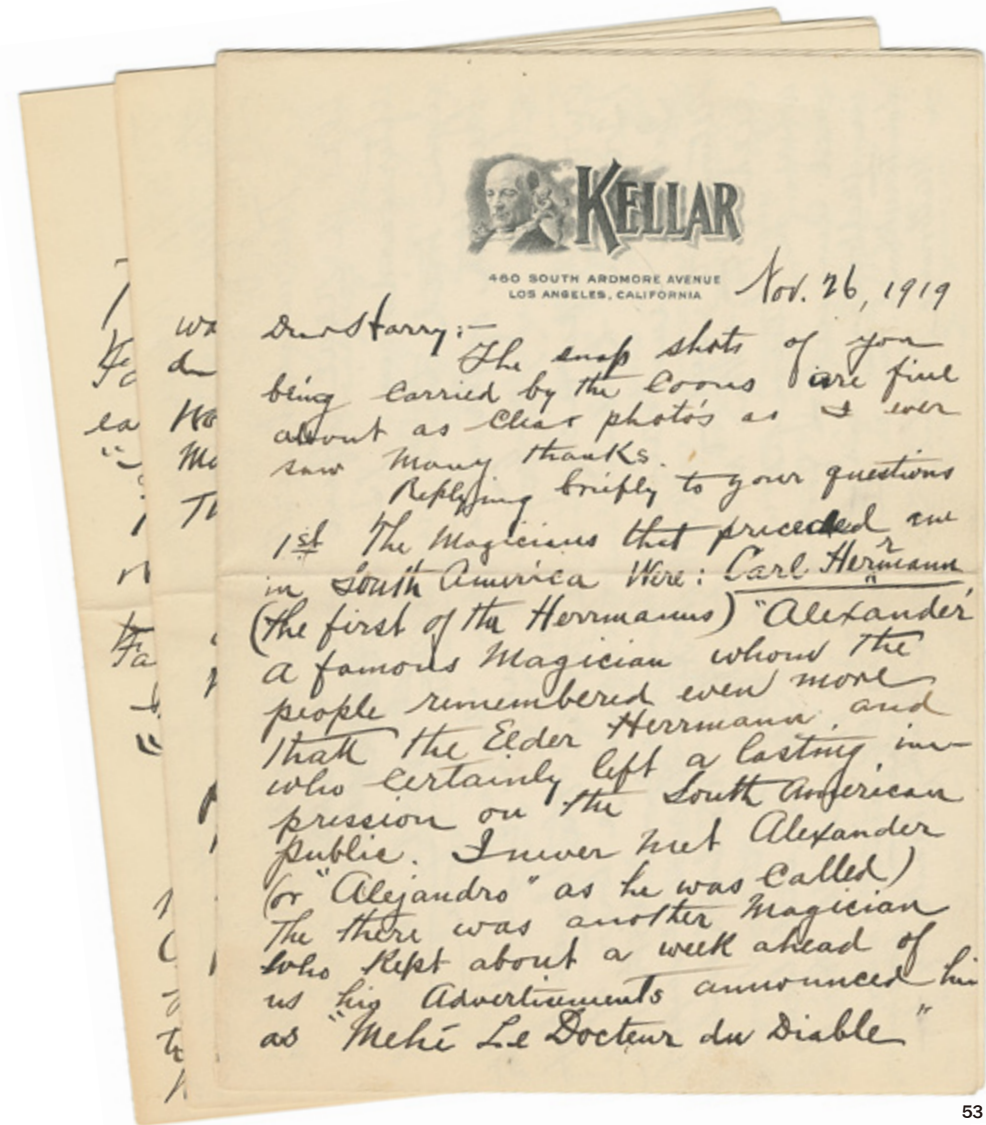 KELLAR
460 SOUTH ARDMORE AVENUE
LOS ANGELES, CALIFORNIA
Nov. 26, 1919
Dear Harry:—
The snap shots of you
being carried by the Coons are fine
about as clear photo's as I ever
saw Many thanks.
Replying briefly to your questions
1st The Magicians that preceded me
in South America Were: Carl Herrmann
(the first of the Herrmanns) "Alexander"
a famous Magician whom the
people remembered even more
than the Elder Herrmann and
who certainly left a lasting im-
pression on the South American
public. I never met Alexander
(or "Alejandro" as he was called)
The there was another Magician
who kept about a week ahead of
us his Advertisements announced him
as "Mehé Le Docteur du Diable"
wa
Ho
Ma
Th
ea
Fa
53